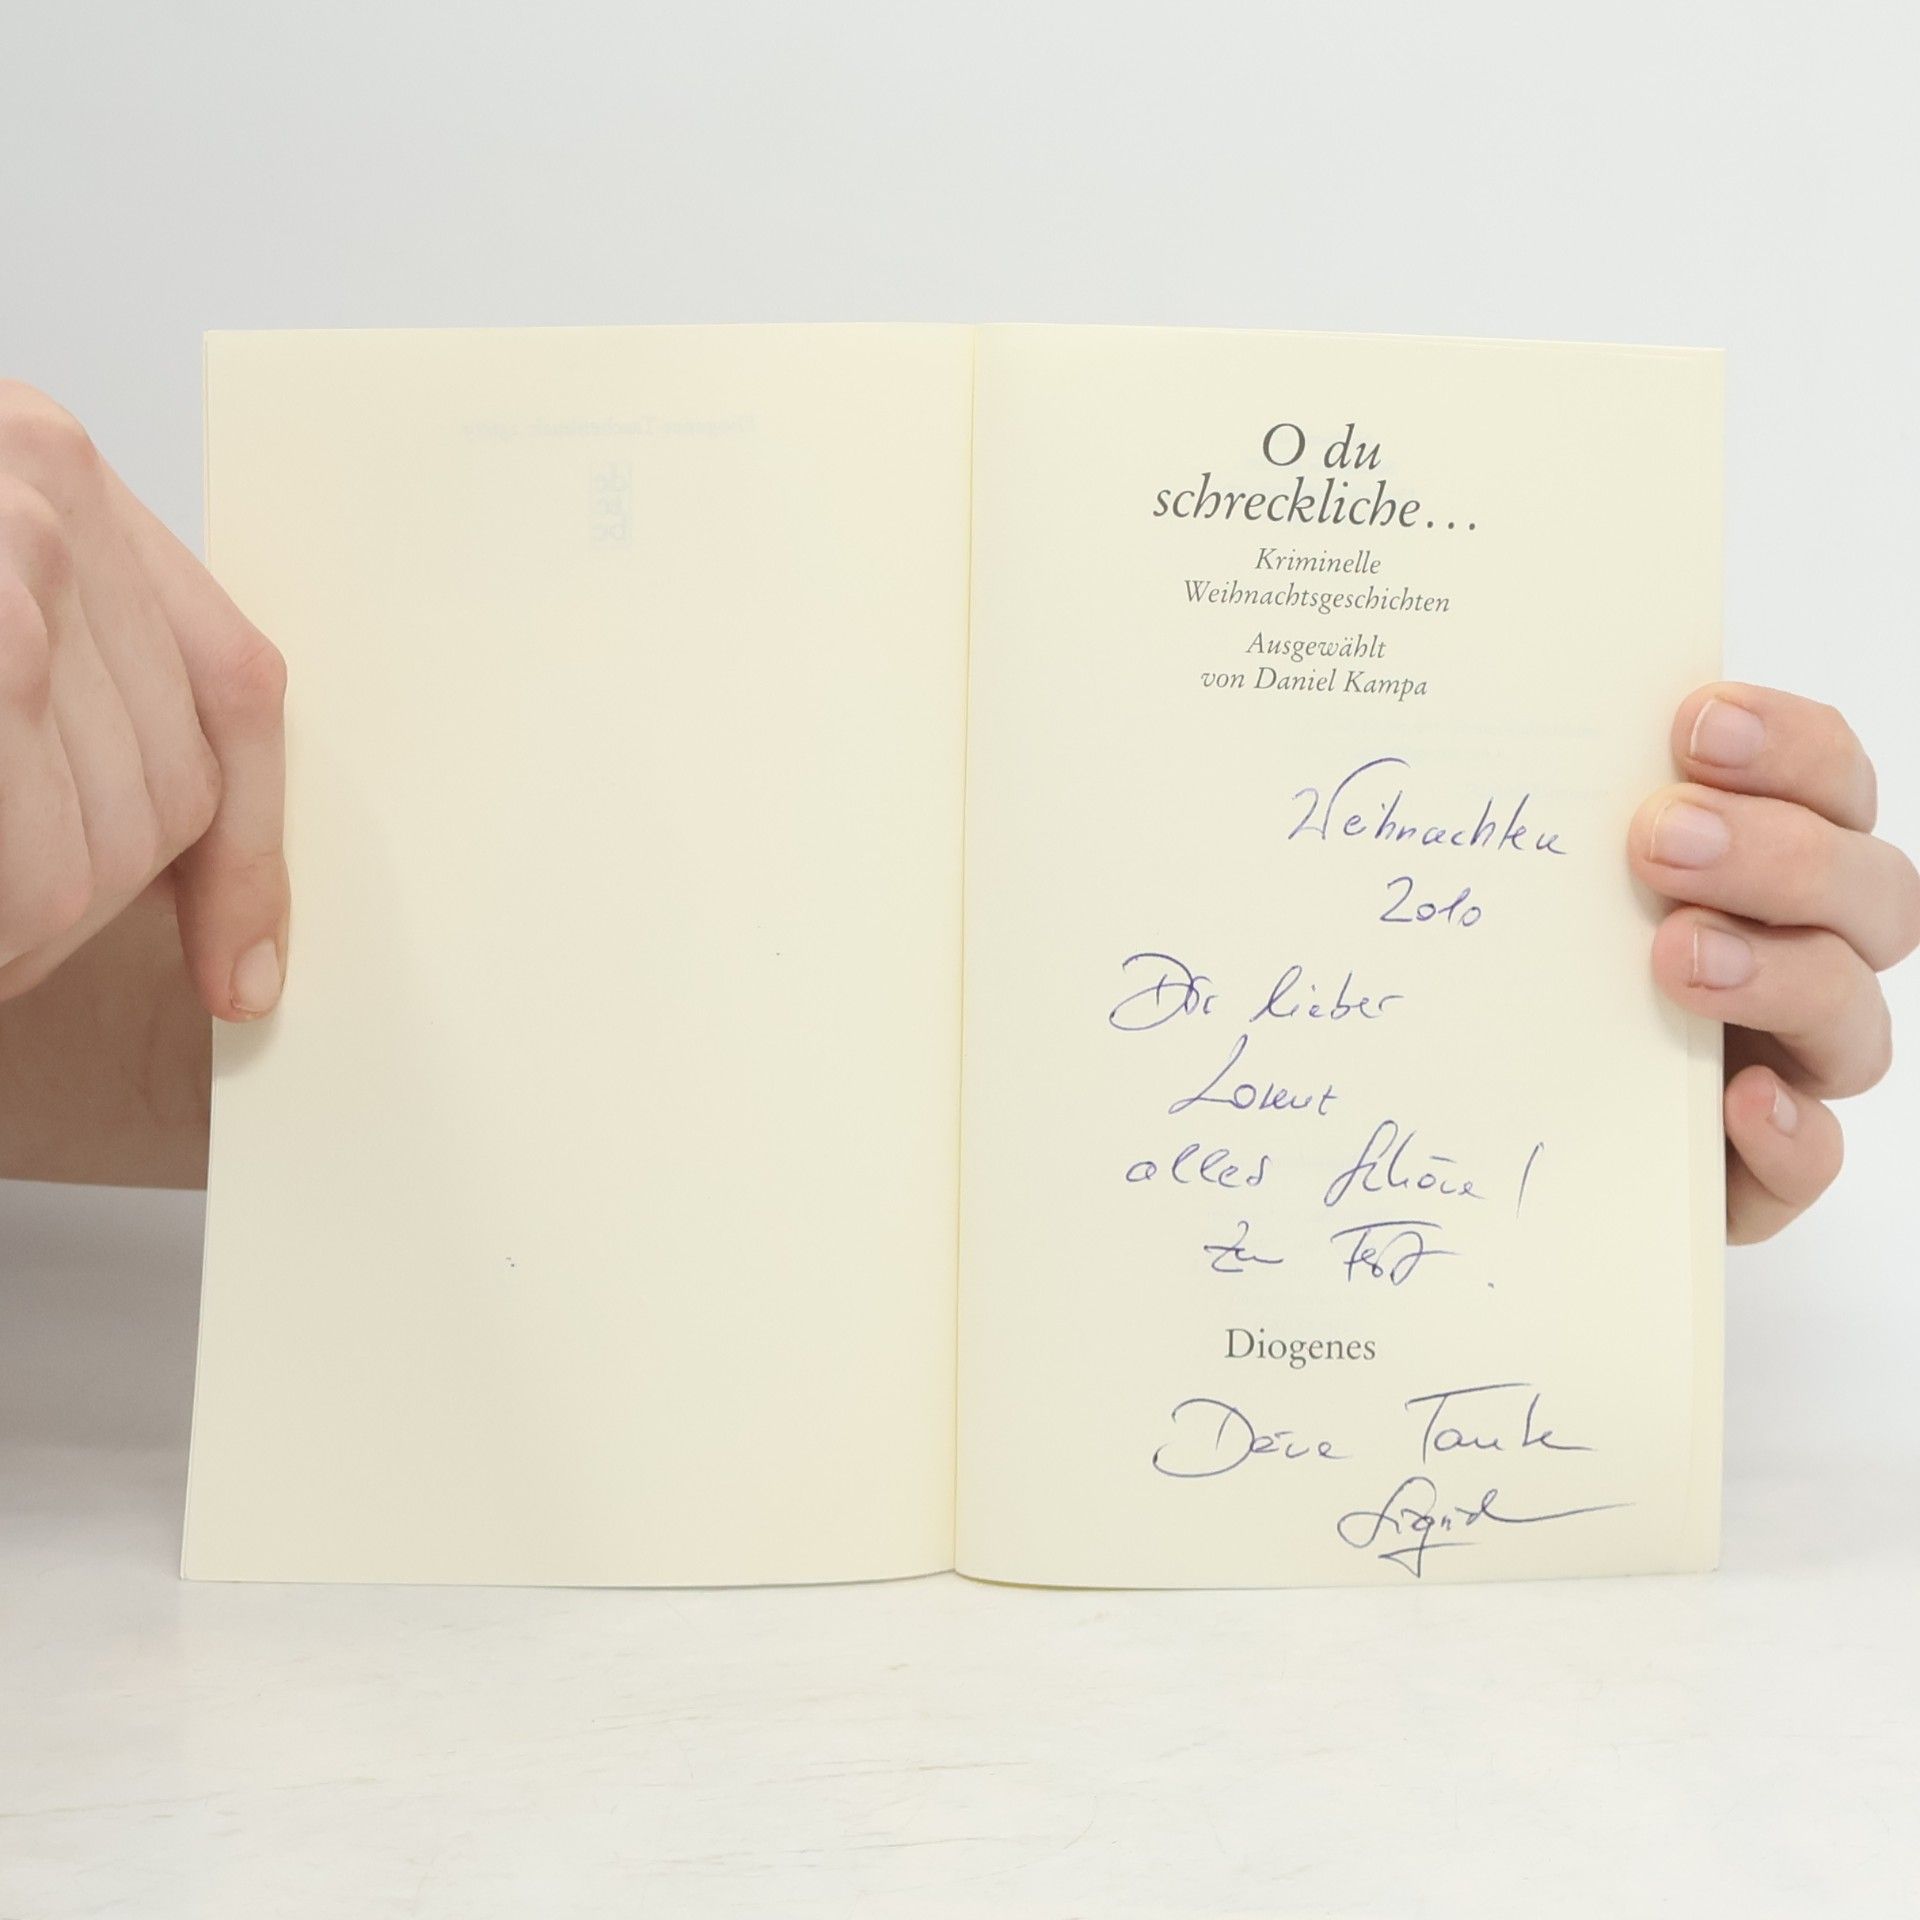 O du
schreckliche...
Kriminelle
Weihnachtsgeschichten
Ausgewählt
von Daniel Kampa
Weihnachten
2010
Dir lieber
alles Schöne!
zum Fest.
Diogenes
Deine Tante
Sigrid